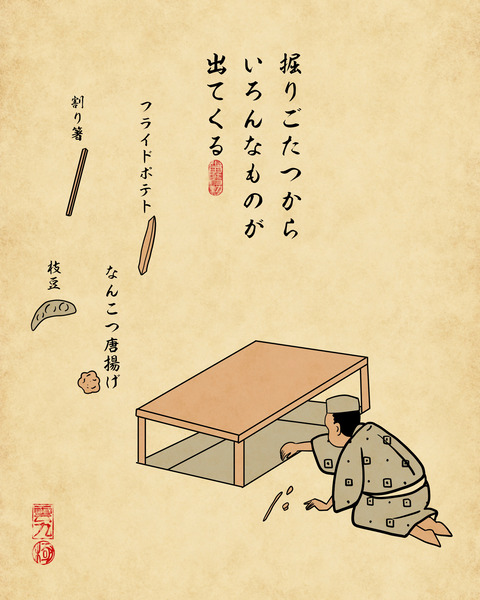 掘りごたつから
いろんなものが
出てくる
フライドポテト
割り箸
なんこつ唐揚げ
枝豆